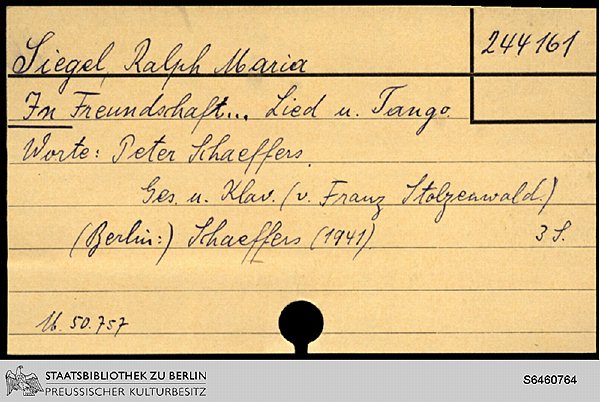 Siegel, Ralph Maria
244161
In Freundschaft... Lied u. Tango.
Worte: Peter Schaeffers.
Ges. u. Klav. (v. Franz Stolzenwald.)
(Berlin:) Schaeffers (1941).
3 S.
M. 50.757
STAATSBIBLIOTHEK ZU BERLIN
PREUSSISCHER KULTURBESITZ
S6460764